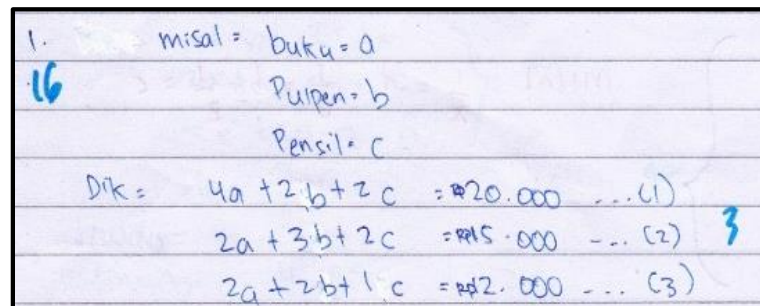 1. misal = buku = a
16 Pulpen = b
Pensil = c
Dik = 4a + 2b + 2c = Rp20.000 ... (1)
2a + 3b + 2c = Rp15.000 ... (2) 3
2a + 2b + 1c = Rp12.000 ... (3)